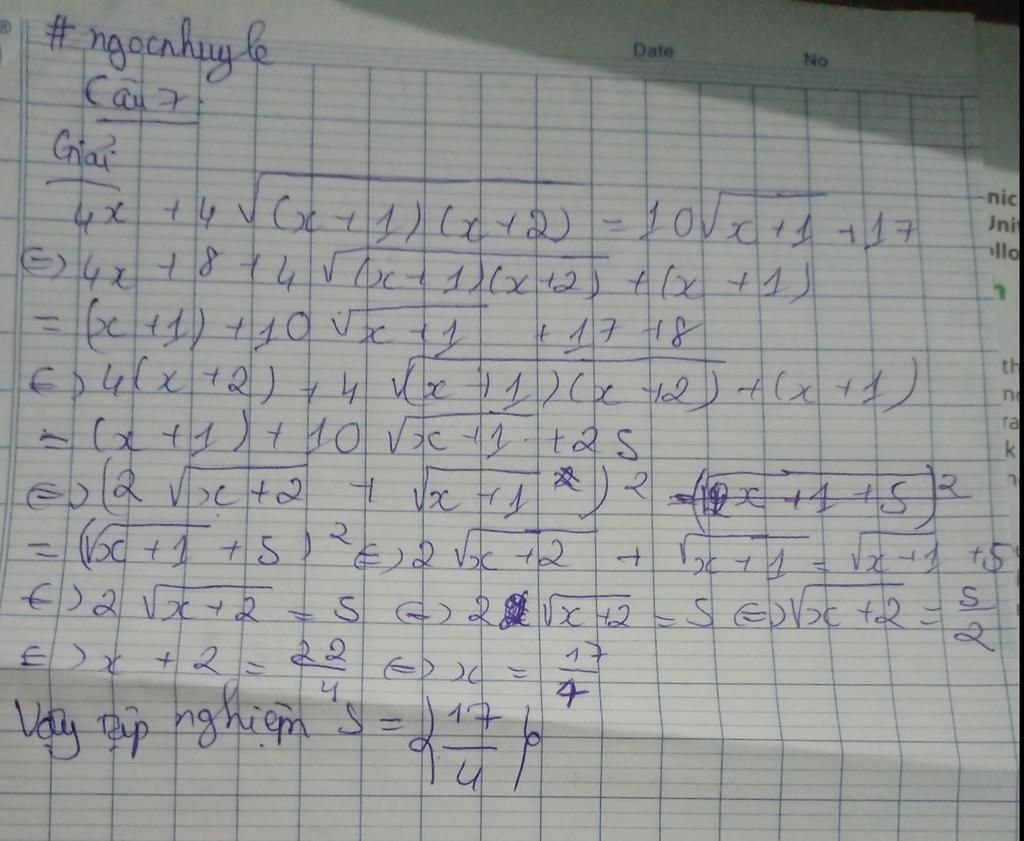 # ngocnhuyle
Date
No
Câu 7
Giải
4x + 4√(x+1)(x+2) = 10√x+1 + 17
⇔ 4x + 8 + 4√(x+1)(x+2) + (x+1)
= (x+1) + 10√x+1 + 17 + 8
⇔ 4(x+2) + 4√(x+1)(x+2) + (x+1)
= (x+1) + 10√x+1 + 25
⇔ (2√x+2 + √x+1)²
= (√x+1 + 5)² ⇔ 2√x+2 + √x+1 = √x+1 + 5
⇔ 2√x+2 = 5 ⇔ 2√x+2 = 5 ⇔ √x+2 = 5/2
⇔ x + 2 = 22/4 ⇔ x = 17/4
Vậy tập nghiệm S = {17/4}
nic